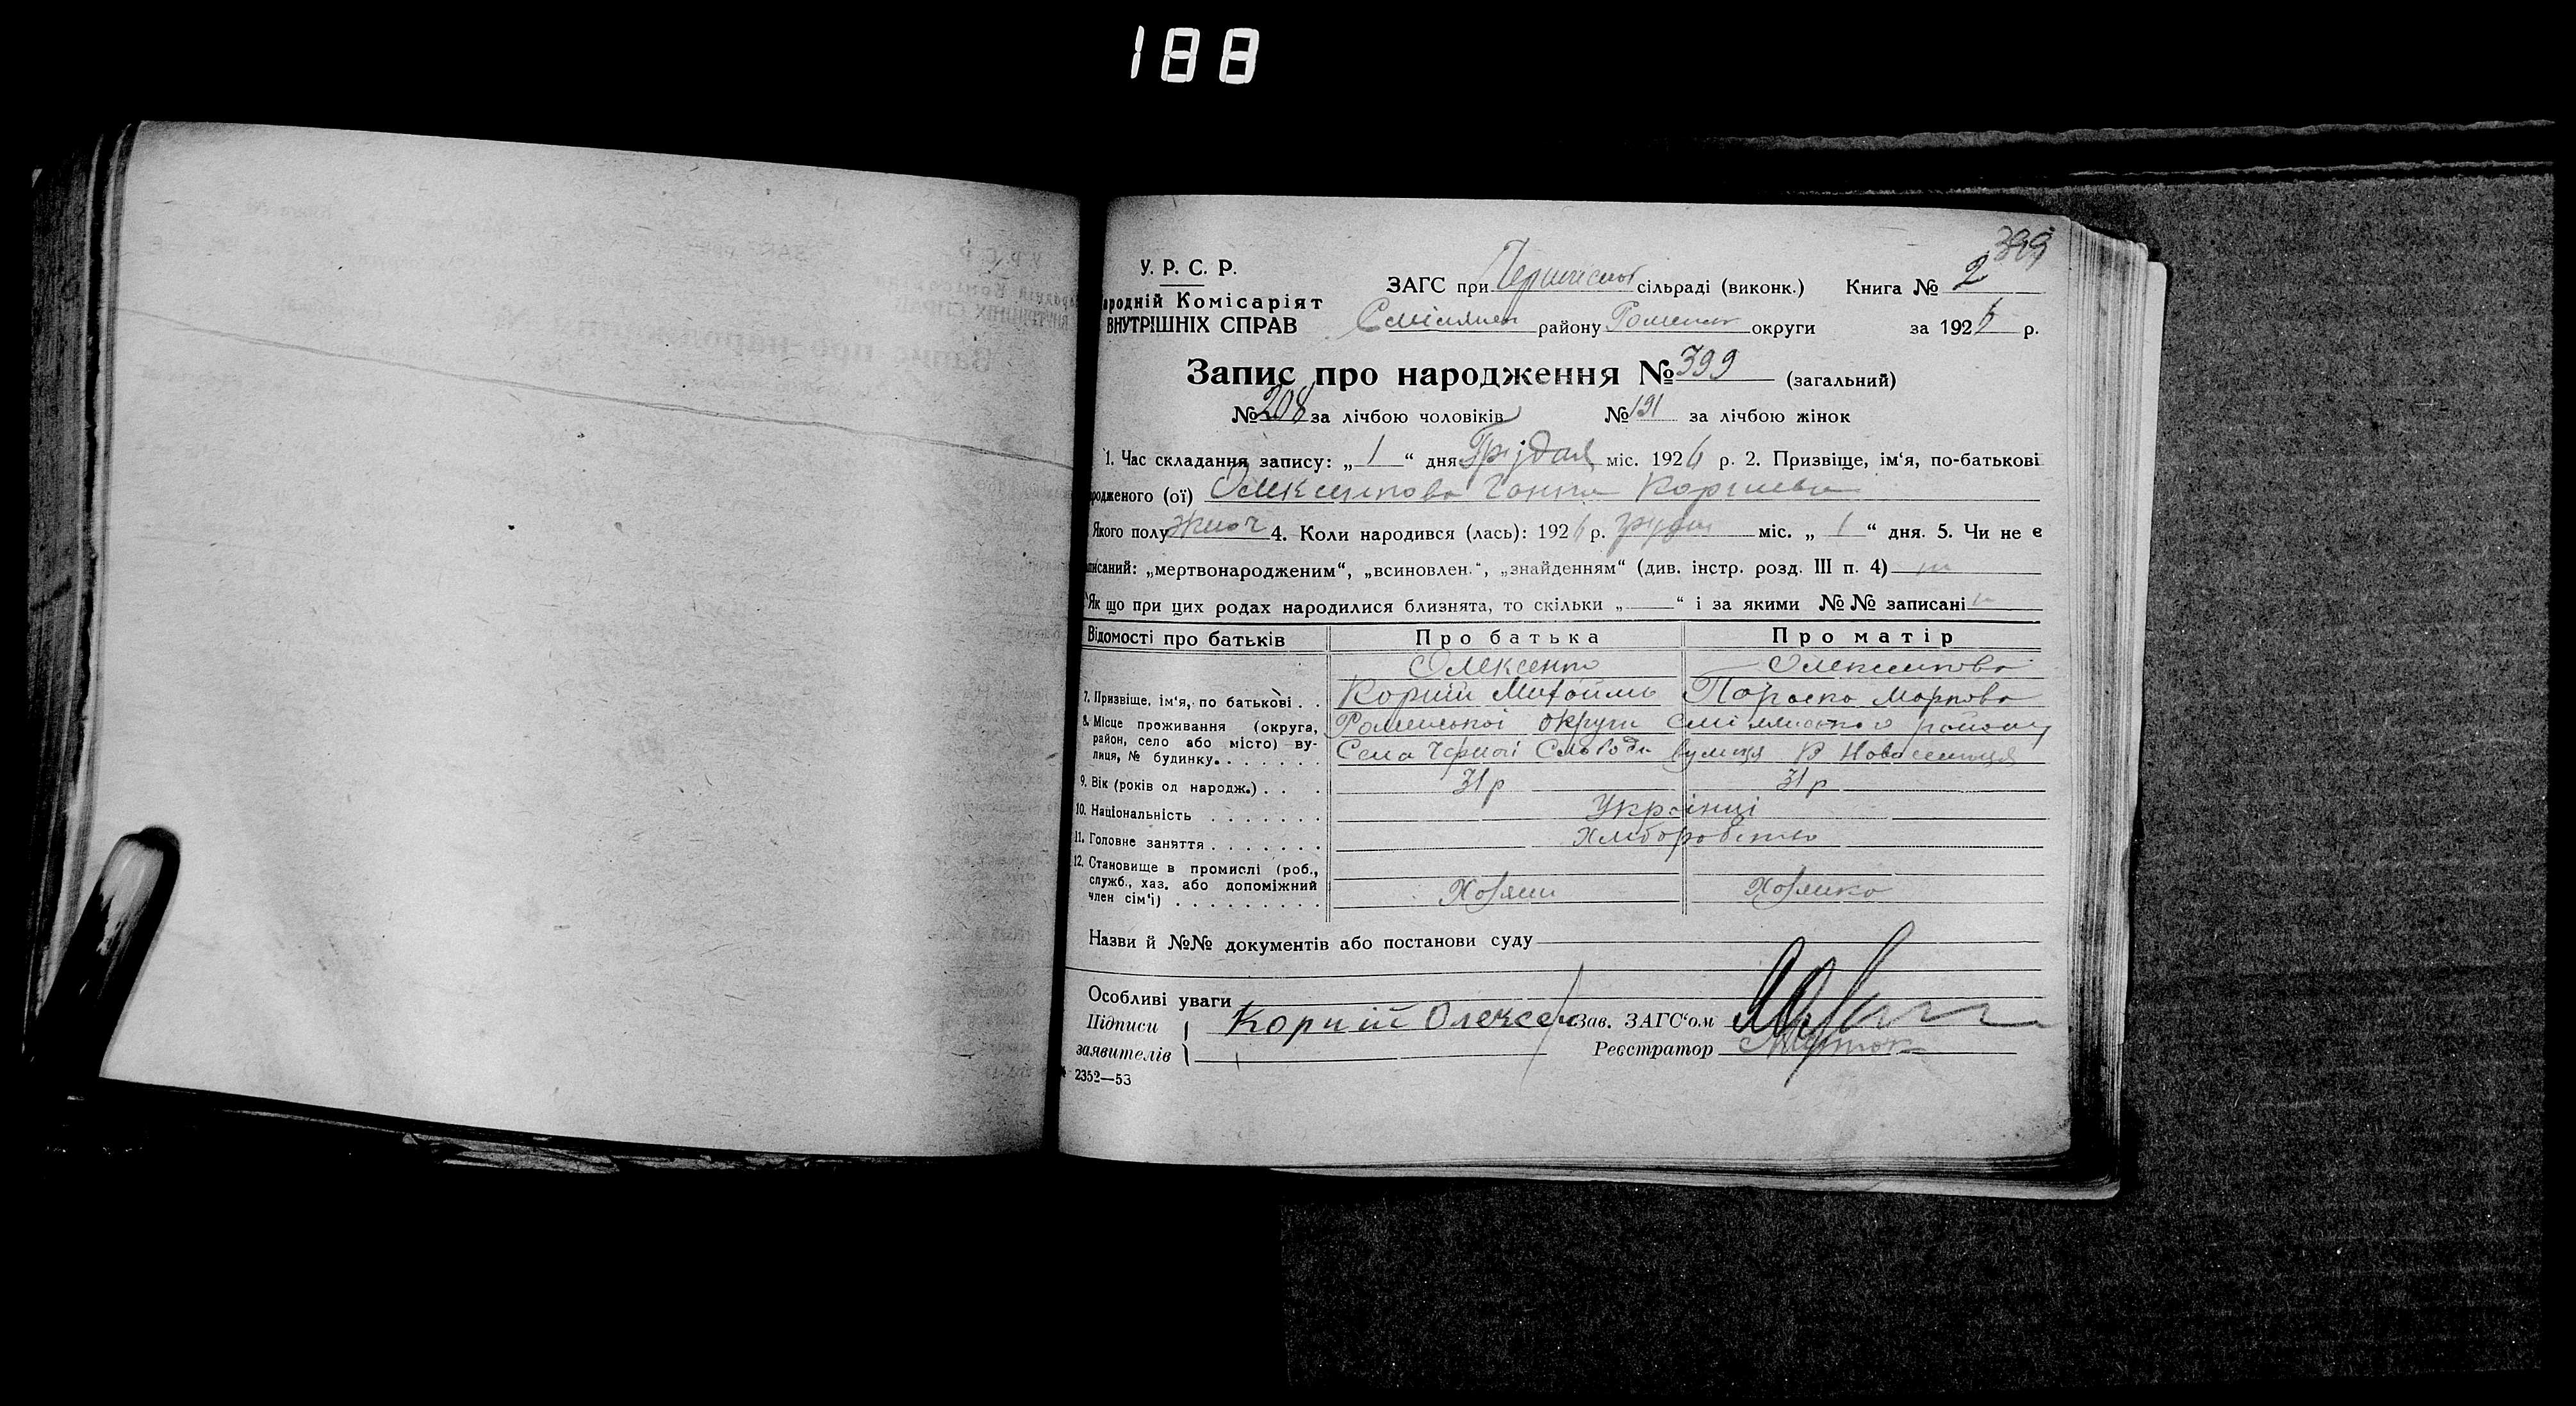 188
399
У. Р. С. Р.
ародній Комісаріят
ВНУТРІШНІХ СПРАВ
ЗАГС при сільраді (виконк.) Книга № 2
району округи за 1926 р.
Запис про народження № 399 (загальний)
№ 208 за лічбою чоловіків № 191 за лічбою жінок
1. Час складання запису: „ 1 “ дня Грудня міс. 1926 р. 2. Призвіще, ім‘я, по-батькові
родженого (ої) Ганна
Якого полу жіноч 4. Коли народився (лась): 1926 р. груд міс. „ 1 “ дня. 5. Чи не є
писаний: „мертвонародженим“, „всиновлен.“, „знайденням“ (див. інстр. розд. III п. 4) ні
Як що при цих родах народилися близнята, то скільки „ “ і за якими №№ записані
Відомості про батьків Про батька Про матір
Олексенко
7. Призвіще, ім‘я, по батькові . . Корній Михайль Параска Маркова
8. Місце проживання (округа, Роменської округи Смілянського району
район, село або місто) ву- Села Черчої Слободи вулиця Новоселиця
лиця, № будинку. . . . . . .
9. Вік (років од народж.) . . . 31 р 31 р
10. Національність . . . . . . . Українці
11. Головне заняття . . . . . . . Хліборобство
12. Становище в промислі (роб.,
служб., хаз. або допоміжний Хозяин Хозяика
член сім‘ї) . . . . . . . . .
Назви й №№ документів або постанови суду
Особливі уваги
Підписи Корній Олексен Зав. ЗАГС‘ом
заявителів Реєстратор
2352—53